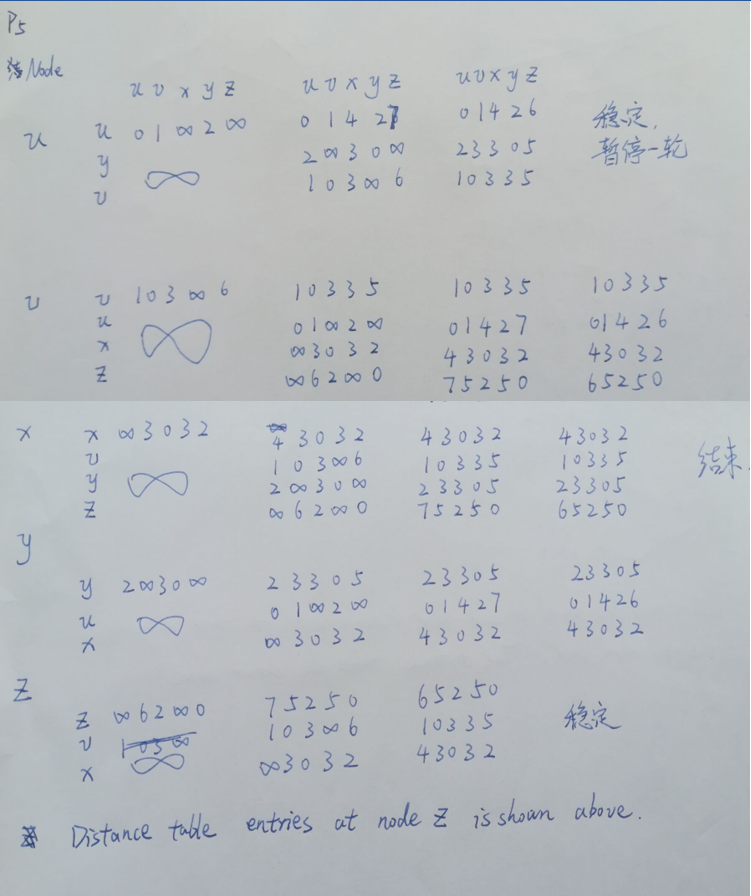 P5
Node
u v x y z u v x y z u v x y z
u u 0 1 ∞ 2 ∞ 0 1 4 2 7 0 1 4 2 6 稳定,
y ∞ 2 ∞ 3 0 ∞ 2 3 3 0 5 暂停一轮
v 1 0 3 ∞ 6 1 0 3 3 5
v v 1 0 3 ∞ 6 1 0 3 3 5 1 0 3 3 5 1 0 3 3 5
u ∞ 0 1 ∞ 2 ∞ 0 1 4 2 7 0 1 4 2 6
x ∞ 3 0 3 2 4 3 0 3 2 4 3 0 3 2
z ∞ 6 2 ∞ 0 7 5 2 5 0 6 5 2 5 0
x x ∞ 3 0 3 2 4 3 0 3 2 4 3 0 3 2 4 3 0 3 2
v 1 0 3 ∞ 6 1 0 3 3 5 1 0 3 3 5 结束.
y ∞ 2 ∞ 3 0 ∞ 2 3 3 0 5 2 3 3 0 5
z ∞ 6 2 ∞ 0 7 5 2 5 0 6 5 2 5 0
y
y 2 ∞ 3 0 ∞ 2 3 3 0 5 2 3 3 0 5 2 3 3 0 5
u ∞ 0 1 ∞ 2 ∞ 0 1 4 2 7 0 1 4 2 6
x ∞ 3 0 3 2 4 3 0 3 2 4 3 0 3 2
z
z ∞ 6 2 ∞ 0 7 5 2 5 0 6 5 2 5 0
v 1 0 3 ∞ 1 0 3 ∞ 6 1 0 3 3 5 稳定
x ∞ ∞ 3 0 3 2 4 3 0 3 2
Distance table entries at node z is shown above.